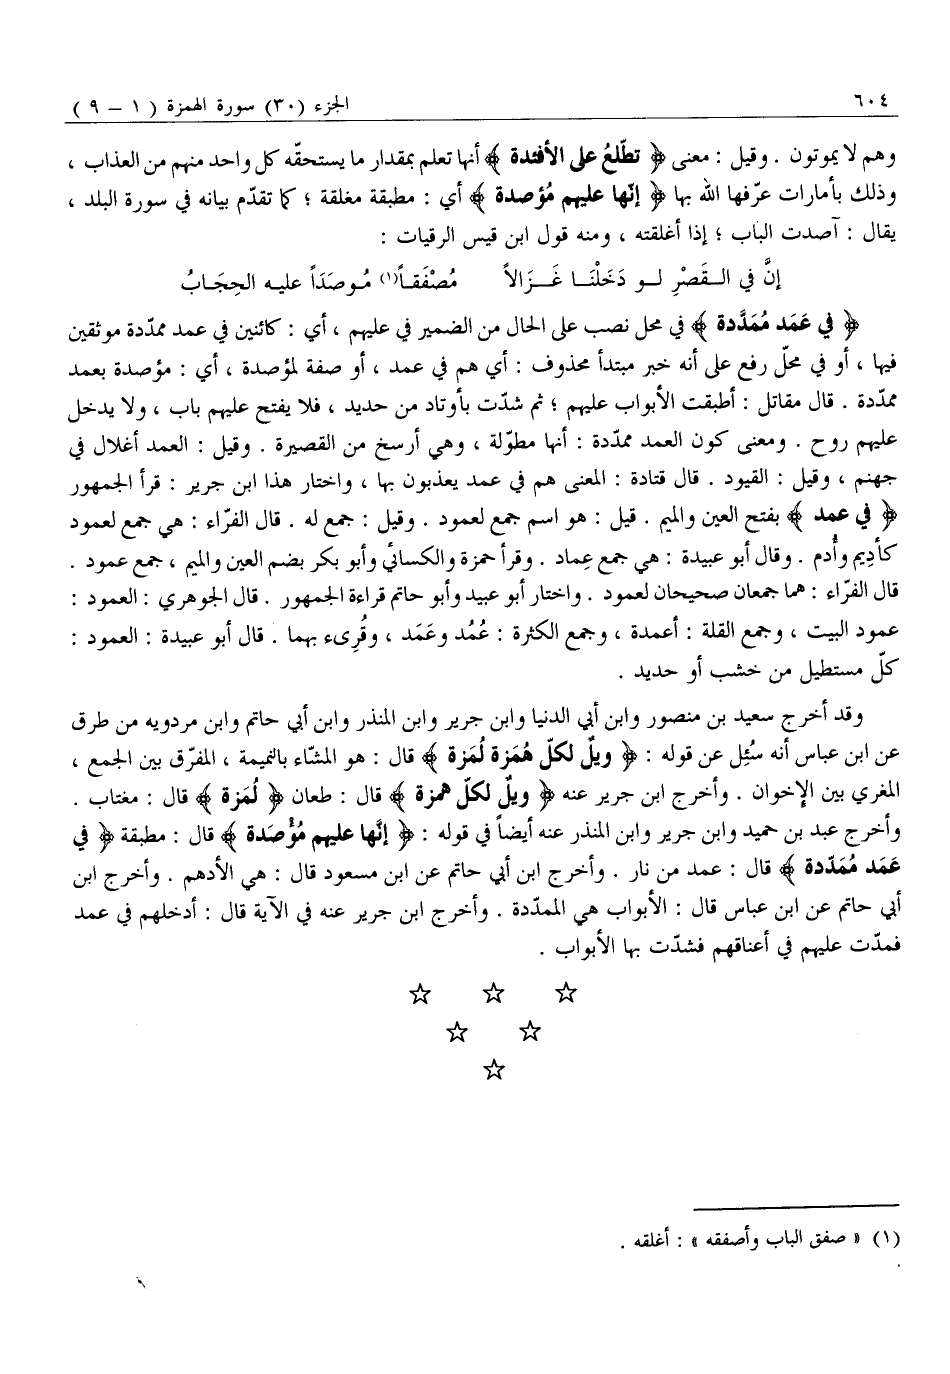 ٦٠٤
الجزء (٣٠) سورة الهمزة ( ١ – ٩ )
وهم لا يموتون . وقيل : معنى ﴿ تطّلعُ على الأفئدة ﴾ أنها تعلم بمقدار ما يستحقّه كل واحد منهم من العذاب ،
وذلك بأمارات عرّفها الله بها ﴿ إنّها عليهم مُؤصدة ﴾ أي : مطبقة مغلقة ؛ كما تقدّم بيانه في سورة البلد ،
يقال : آصدت الباب ؛ إذا أغلقته ، ومنه قول ابن قيس الرقيات :
إنَّ في القَصْرِ لو دَخَلْنَا غَزَالاً مُصْفَقاً(١) مُوصَدَاً عليه الحِجَابُ
﴿ في عَمَد مُمَدَّدة ﴾ في محل نصب على الحال من الضمير في عليهم ، أي : كائنين في عمد ممدّدة موثقين
فيها ، أو في محلّ رفع على أنه خبر مبتدأ محذوف : أي هم في عمد ، أو صفة لمؤصدة ، أي : مؤصدة بعمد
ممدّدة . قال مقاتل : أطبقت الأبواب عليهم ؛ ثم شدّت بأوتاد من حديد ، فلا يفتح عليهم باب ، ولا يدخل
عليهم روح . ومعنى كون العمد ممدّدة : أنها مطوّلة ، وهي أرسخ من القصيرة . وقيل : العمد أغلال في
جهنم ، وقيل : القيود . قال قتادة : المعنى هم في عمد يعذبون بها ، واختار هذا ابن جرير : قرأ الجمهور
﴿ في عمد ﴾ بفتح العين والميم . قيل : هو اسم جمع لعمود . وقيل : جمع له . قال الفرّاء : هي جمع لعمود
كأدِيم وأُدم . وقال أبو عبيدة : هي جمع عِماد . وقرأ حمزة والكسائي وأبو بكر بضم العين والميم ، جمع عمود .
قال الفرّاء : هما جمعان صحيحان لعمود . واختار أبو عبيد وأبو حاتم قراءة الجمهور . قال الجوهري : العمود :
عمود البيت ، وجمع القلة : أعمدة ، وجمع الكثرة : عُمُد وعَمَد ، وقُرِىء بهما . قال أبو عبيدة : العمود :
كلّ مستطيل من خشب أو حديد .
وقد أخرج سعيد بن منصور وابن أبي الدنيا وابن جرير وابن المنذر وابن أبي حاتم وابن مردويه من طرق
عن ابن عباس أنه سُئِل عن قوله : ﴿ ويلٌ لكلّ هُمَزة لُمَزة ﴾ قال : هو المشّاء بالنميمة ، المفرّق بين الجمع ،
المغري بين الإخوان . وأخرج ابن جرير عنه ﴿ ويلٌ لكلّ همزة ﴾ قال : طعان ﴿ لُمَزة ﴾ قال : مغتاب .
وأخرج عبد بن حميد وابن جرير وابن المنذر عنه أيضاً في قوله : ﴿ إنّها عليهم مُؤْصَدة ﴾ قال : مطبقة ﴿ في
عَمَد مُمَدّدة ﴾ قال : عمد من نار . وأخرج ابن أبي حاتم عن ابن مسعود قال : هي الأدهم . وأخرج ابن
أبي حاتم عن ابن عباس قال : الأبواب هي الممدّدة . وأخرج ابن جرير عنه في الآية قال : أدخلهم في عمد
فمدّت عليهم في أعناقهم فشدّت بها الأبواب .
(١) « صفق الباب وأصفقه » : أغلقه .